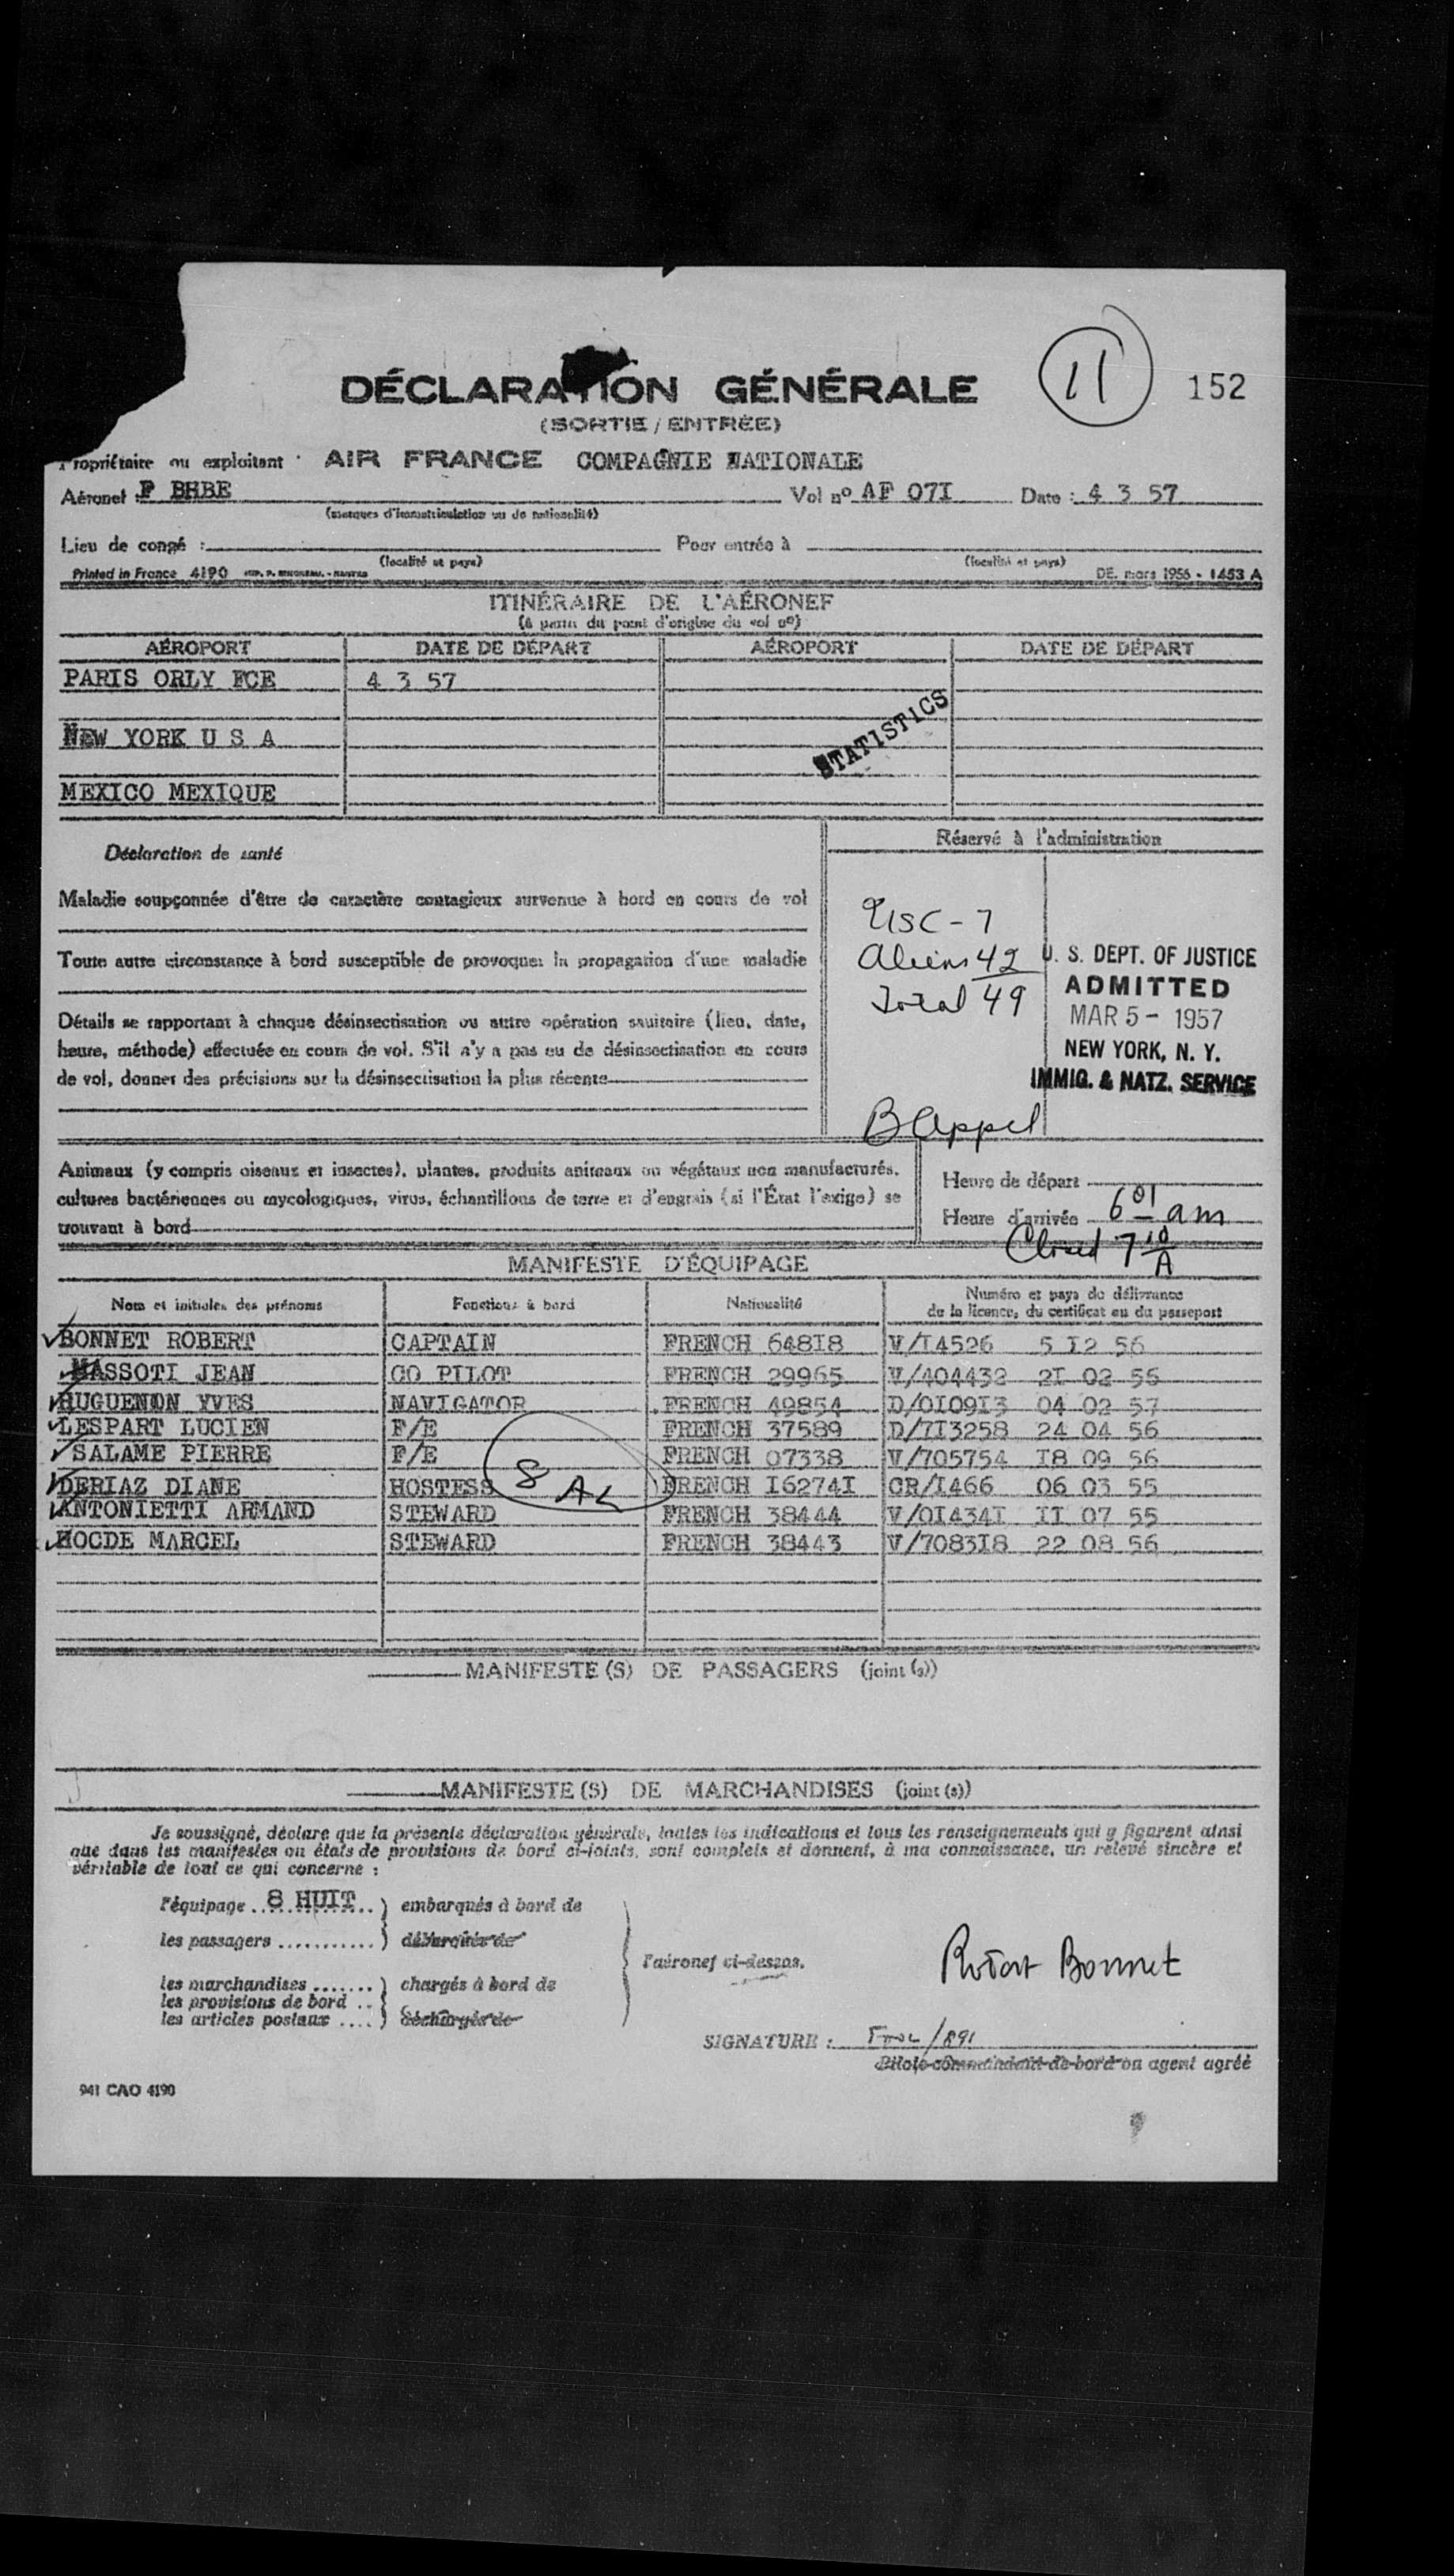 11
152
DÉCLARATION GÉNÉRALE
(SORTIE / ENTRÉE)
Propriétaire ou exploitant : AIR FRANCE COMPAGNIE NATIONALE
Aéronef : F BHBE Vol nº AF 07I Date : 4 3 57
(marques d'immatriculation ou de nationalité)
Lieu de congé : Pour entrée à
(localité et pays) (localité et pays)
Printed in France 4190 DE. mars 1956 - 1453 A
ITINÉRAIRE DE L'AÉRONEF
(à partir du point d'origine du vol nº)
AÉROPORT DATE DE DÉPART AÉROPORT DATE DE DÉPART
PARIS ORLY FCE 4 3 57
STATISTICS
NEW YORK U S A
MEXICO MEXIQUE
Réservé à l'administration
Déclaration de santé
Maladie soupçonnée d'être de caractère contagieux survenue à bord en cours de vol
Toute autre circonstance à bord susceptible de provoquer la propagation d'une maladie
Détails se rapportant à chaque désinsectisation ou autre opération sanitaire (lieu, date,
heure, méthode) effectuée en cours de vol. S'il n'y a pas eu de désinsectisation en cours
de vol, donner des précisions sur la désinsectisation la plus récente
USC - 7
Aliens 42
Total 49
U. S. DEPT. OF JUSTICE
ADMITTED
MAR 5 - 1957
NEW YORK, N. Y.
IMMIG. & NATZ. SERVICE
B Appel
Animaux (y compris oiseaux et insectes), plantes, produits animaux ou végétaux non manufacturés,
cultures bactériennes ou mycologiques, virus, échantillons de terre et d'engrais (si l'État l'exige) se
trouvant à bord
Heure de départ
Heure d'arrivée 6 01 am
Closed 7 10 A
MANIFESTE D'ÉQUIPAGE
Nom et initiales des prénoms Fonctions à bord Nationalité Numéro et pays de délivrance
de la licence, du certificat ou du passeport
BONNET ROBERT CAPTAIN FRENCH 648I8 V/I4526 5 I2 56
MASSOTI JEAN CO PILOT FRENCH 29965 V/404432 2I 02 56
HUGUENON YVES NAVIGATOR FRENCH 49854 D/0I09I3 04 02 57
LESPART LUCIEN F/E FRENCH 37589 D/7I3258 24 04 56
SALAME PIERRE F/E FRENCH 07338 V/705754 I8 09 56
DERIAZ DIANE HOSTESS FRENCH I6274I CR/I466 06 03 55
8 AL
ANTONIETTI ARMAND STEWARD FRENCH 38444 V/0I434I II 07 55
HOCDE MARCEL STEWARD FRENCH 38443 V/7083I8 22 08 56
MANIFESTE(S) DE PASSAGERS (joint (s))
MANIFESTE(S) DE MARCHANDISES (joint (s))
Je soussigné, déclare que la présente déclaration générale, toutes les indications et tous les renseignements qui y figurent ainsi
que dans les manifestes ou états de provisions de bord ci-joints, sont complets et donnent, à ma connaissance, un relevé sincère et
véritable de tout ce qui concerne :
l'équipage .. 8 HUIT ..) embarqués à bord de
les passagers ...........) débarqués de
l'aéronef ci-dessus.
les marchandises .......) chargés à bord de
les provisions de bord ..
les articles postaux ....) déchargés de
Robert Bonnet
SIGNATURE : /891
Pilote commandant de bord ou agent agréé
941 CAO 4190